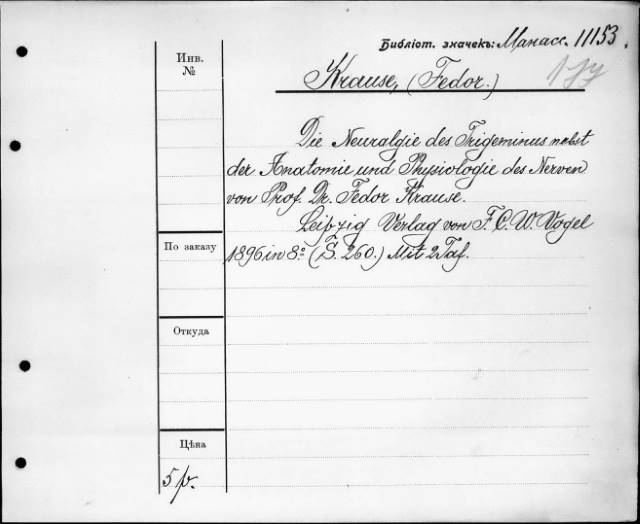 Библіот. значекъ: Манасс. 11153.
Инв.
№
Krause, (Fedor.)
Die Neuralgie des Trigeminus nebst
der Anatomie und Physiologie des Nerven
von Prof. Dr. Fedor Krause.
Leipzig Verlag von F. C. W. Vogel
По заказу
1896 in 8º (S. 260.) Mit 2 Taf.
Откуда
Цѣна
5 р.